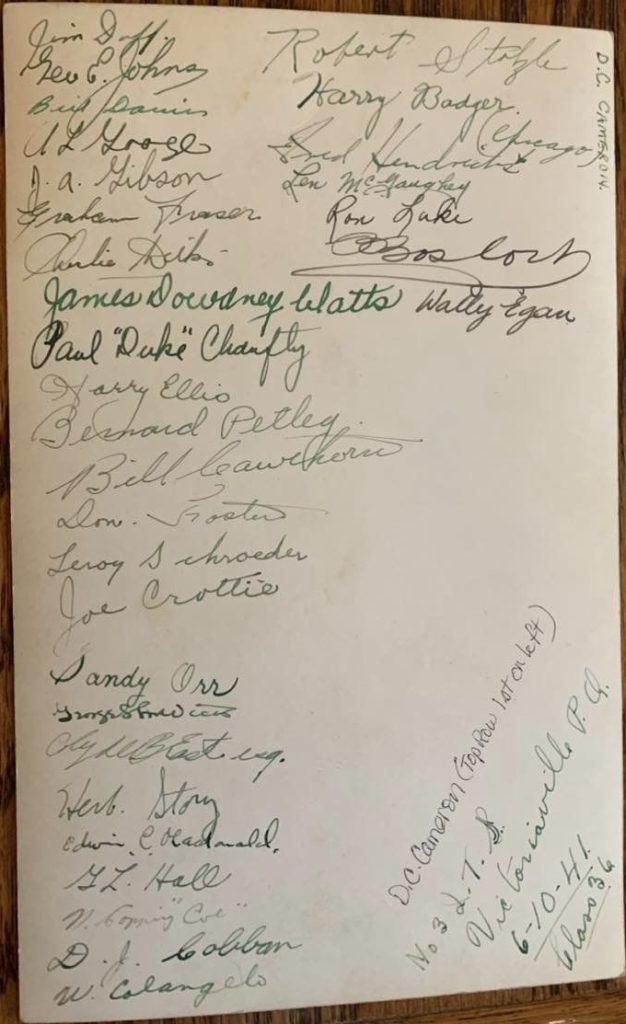 Jim Duff.
Geo E. Johns
Bill Davies
A L Googe
J. A. Gibson
Graham Fraser
Charlie
James Dowdney Watts
Paul "Duke" Chaufty
Harry Ellis
Bernard Petley.
Bill Cawthorn
Don. Foster
Leroy Schroeder
Joe Crottie
Sandy Orr
Clyde B East esq.
Herb. Story
Edwin C. Macdonald.
G L. Hall
"Coe"
D. J. Cobban
W. Colangelo
Robert
Harry Badger.
(Chicago)
Fred Hendricks
Len McGaughey
Ron Lake
Wally Egan
D.C. CAMERON.
D.C. Cameron (Top Row 1st on left)
No 3 I. T. S.
Victoriaville P. Q.
6-10-41.
Class 36